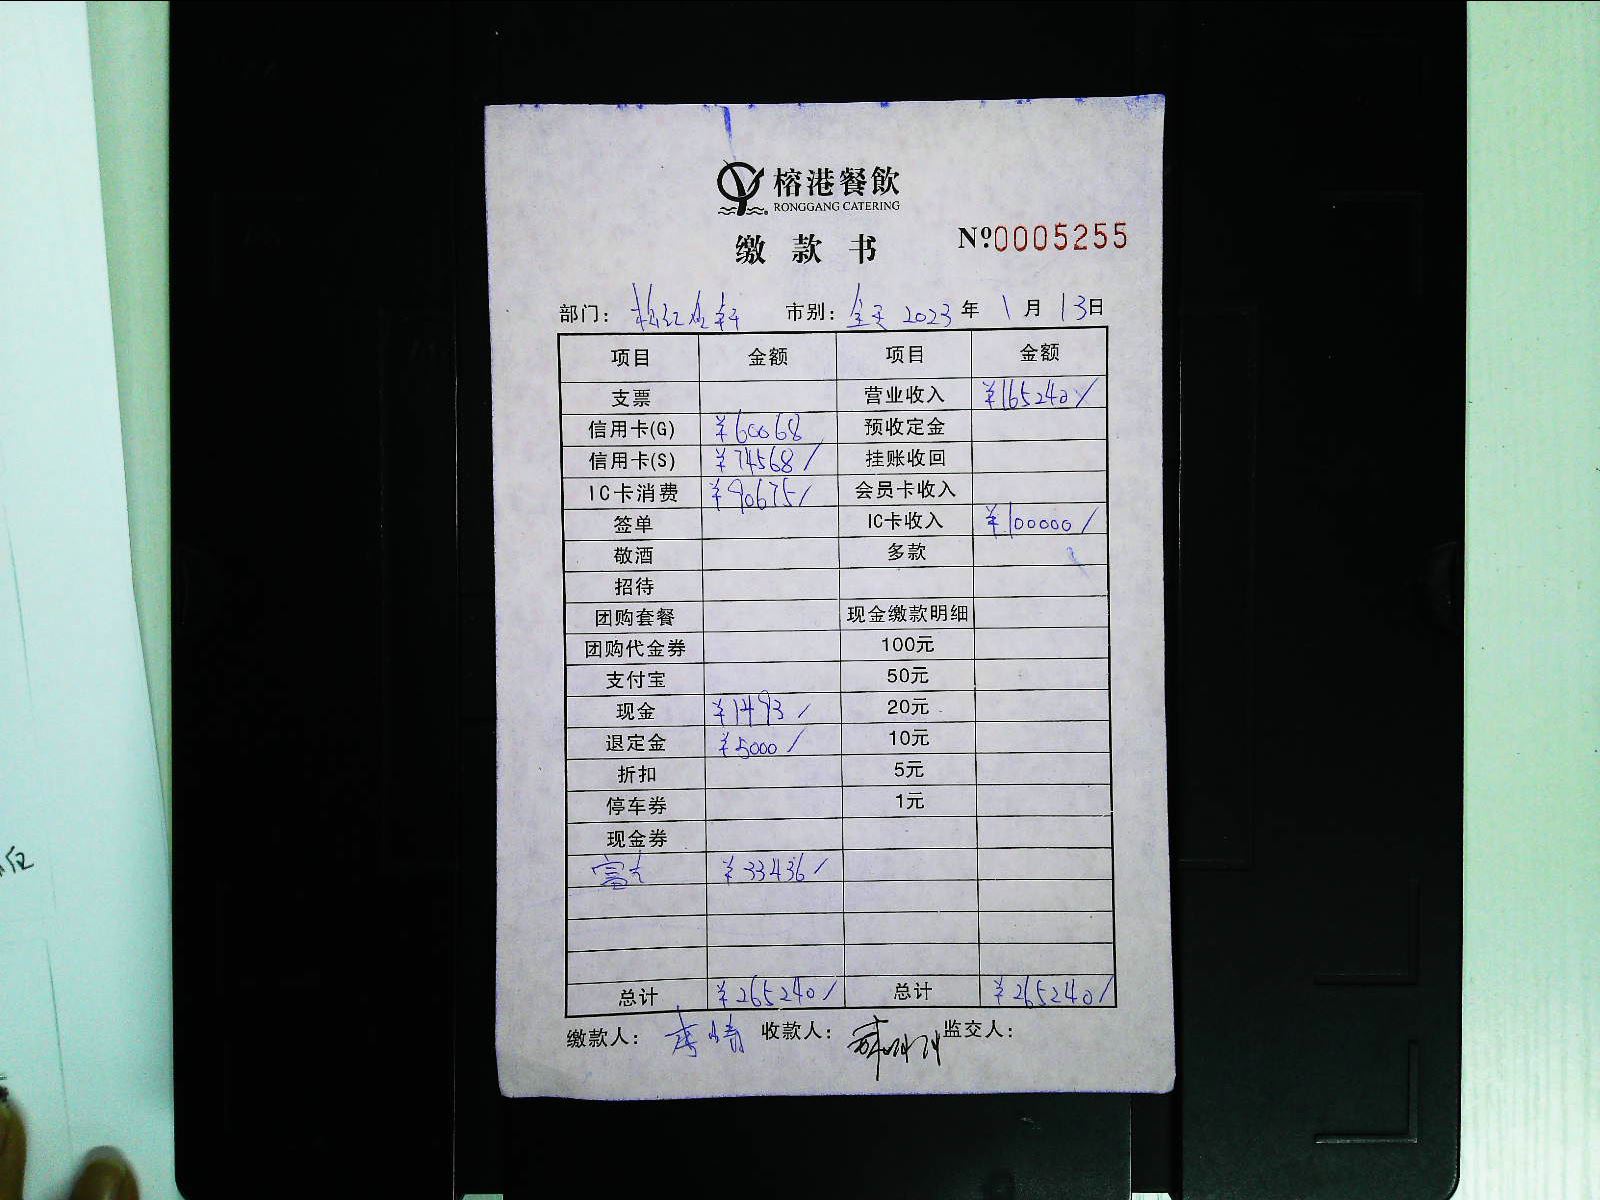 榕港餐飲
RONGGANG CATERING
缴款书 Nº0005255
部门: 市别: 全天 2023 年 1 月 13 日
项目 金额 项目 金额
支票 营业收入 ¥165240/
信用卡(G) ¥60068 预收定金
信用卡(S) ¥74568/ 挂账收回
IC卡消费 ¥90675/ 会员卡收入
签单 IC卡收入 ¥100000/
敬酒 多款
招待
团购套餐 现金缴款明细
团购代金券 100元
支付宝 50元
现金 ¥1493/ 20元
退定金 ¥5000/ 10元
折扣 5元
停车券 1元
现金券
¥33436/
总计 ¥265240/ 总计 ¥265240/
缴款人: 李晴 收款人: 监交人: